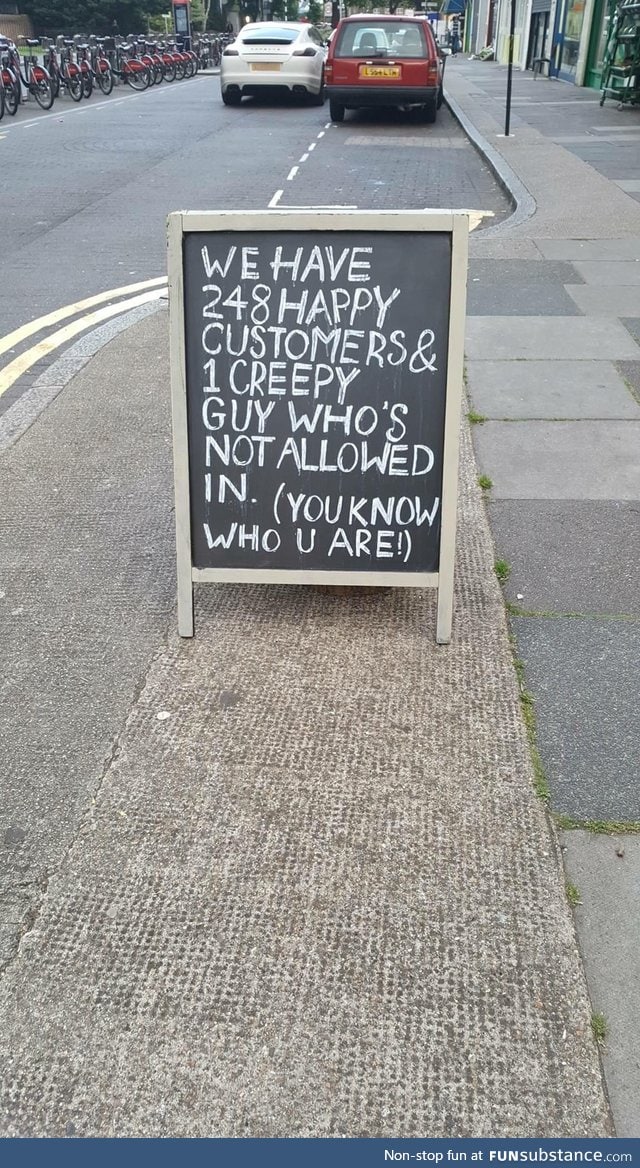 WE HAVE
248 HAPPY
CUSTOMERS &
1 CREEPY
GUY WHO'S
NOT ALLOWED
IN. (YOU KNOW
WHO U ARE!)
Non-stop fun at FUNsubstance.com